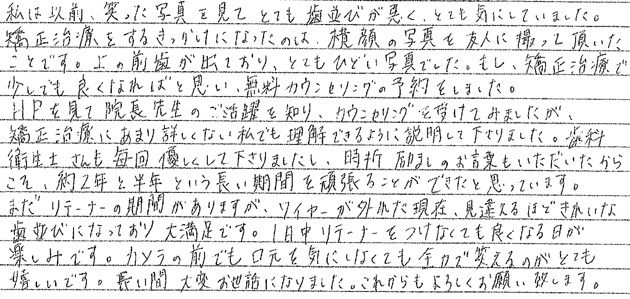 私は以前、笑った写真を見てとても歯並びが悪く、とても気にしていました。
矯正治療をするきっかけになったのは、横顔の写真を友人に撮って頂いた
ことです。上の前歯が出ており、とてもひどい写真でした。もし、矯正治療で
少しでも良くなればと思い、無料カウンセリングの予約をしました。
HPを見て院長先生のご活躍を知り、カウンセリングを受けてみましたが、
矯正治療にあまり詳しくない私でも理解できるように説明して下さりました。歯科
衛生士さんも毎回優しくして下さりましたし、時折励ましのお言葉もいただいたから
こそ、約2年と半年という長い期間を頑張ることができたと思っています。
まだリテーナーの期間がありますが、ワイヤーが外れた現在、見違えるほどきれいな
歯並びになっており大満足です。1日中リテーナーをつけなくても良くなる日が
楽しみです。カメラの前でも口元を気にしなくても全力で笑えるのがとても
嬉しいです。長い間大変お世話になりました。これからもよろしくお願い致します。